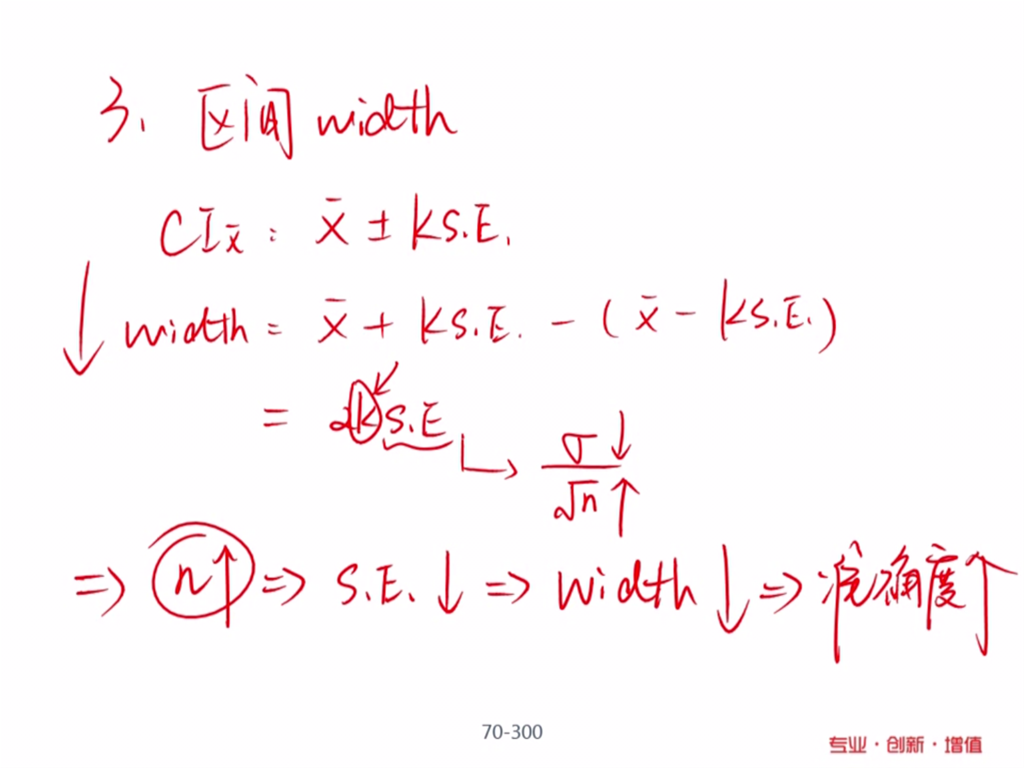 3. 区间 width
CI x̄ : x̄ ± K S.E.
width = x̄ + K S.E. - ( x̄ - K S.E. )
= 2K S.E → σ ↓ / √n ↑
⇒ n↑ ⇒ S.E. ↓ ⇒ width ↓ ⇒ 准确度↑
70-300
专业·创新·增值